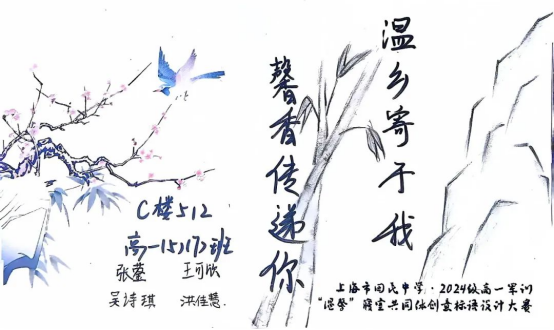 温乡寄于我
馨香传递你
C楼512
高一(5)(7)班
张蓥 王可欣
吴诗琪 洪佳慧
上海市回民中学·2024级高一军训
"温馨"寝室共同体创意标语设计大赛